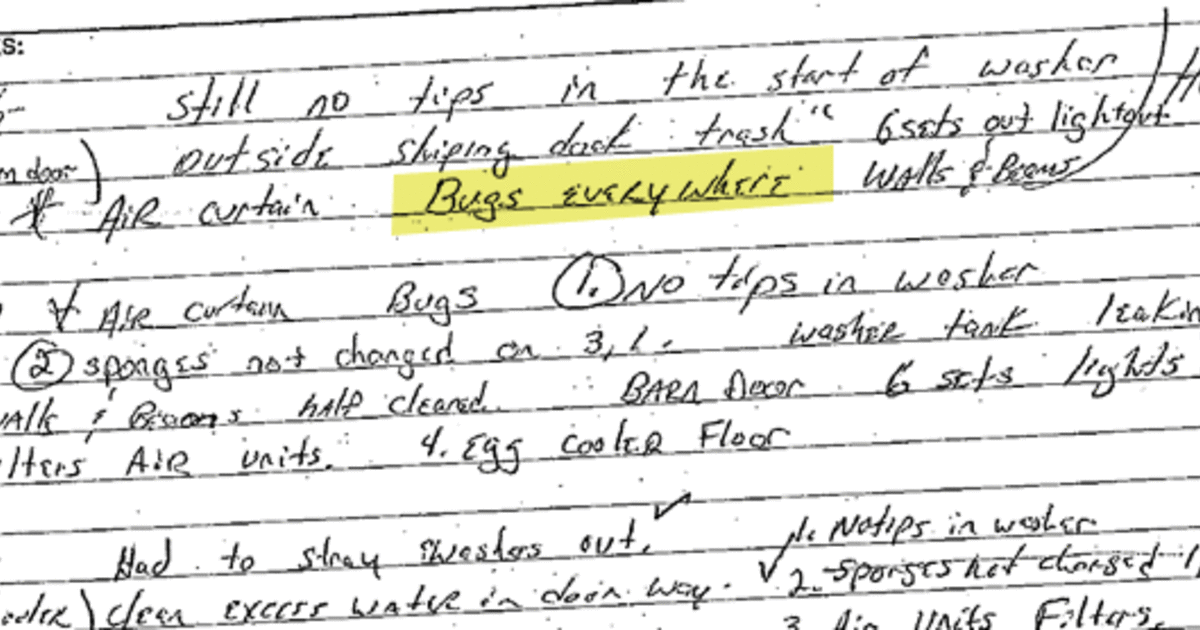 s:
still no tips in the start of washer
outside shiping dock trash 6 sets out light out
m door) AiR curtain Bugs everywhere walls & Beams
AiR curtain Bugs 1. No tips in washer
2 sponges not changed on 3, 1. washer tank leakin
walls & Beams half cleaned. BARN Door 6 sets lights
lters AiR units. 4. Egg cooler Floor
Had to stray washers out. 1. No tips in washer
ooler) clean excess water in door way. 2. sponges not changed
3 Air units Filters.